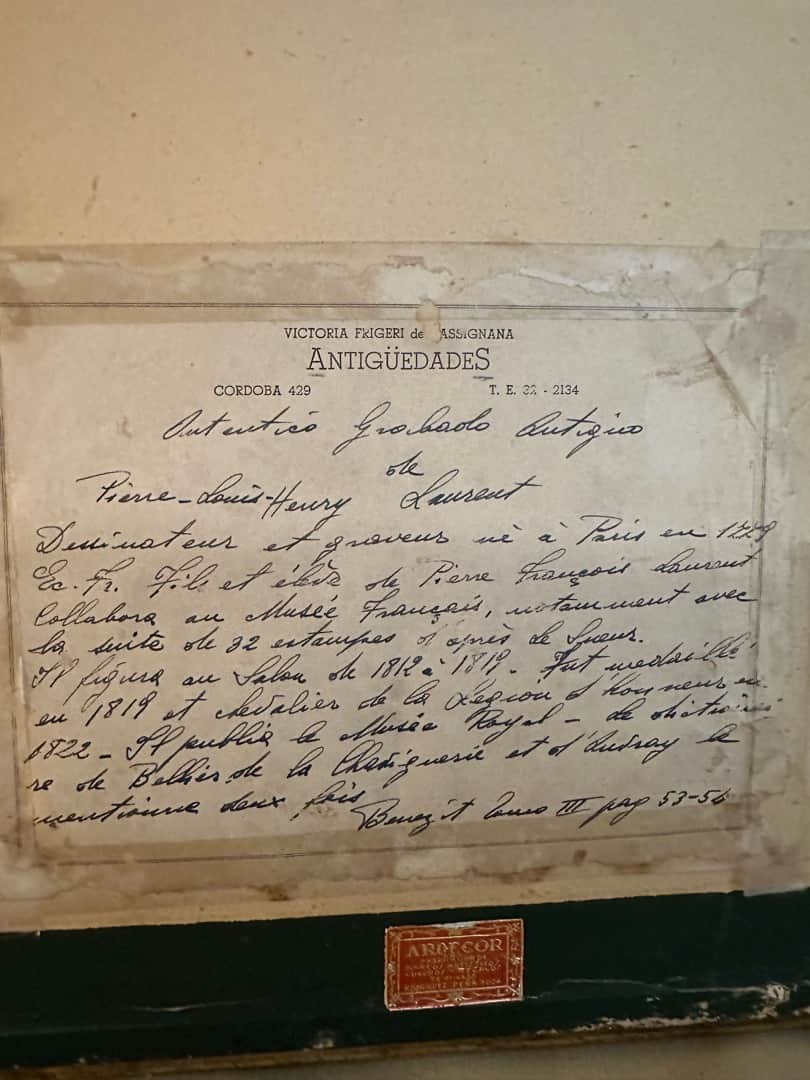 VICTORIA FRIGERI de ASSIGNANA
ANTIGÜEDADES
CORDOBA 429 T. E. 32 - 2134
Autentico Grabado Antiguo
de
Pierre-Louis-Henry Laurent
Dessinateur et graveur né à Paris en 1779
Ec. Fr. Fils et élève de Pierre François Laurent
Collabora au Musée Français, notamment avec
la suite de 32 estampes d'après Le Sueur.
Il figura au Salon de 1812 à 1819. Fut medaillé
en 1819 et chevalier de la Legion d'honneur en
1822 - Il publia le Musée Royal - Le dictionnai
re de Bellier de la Chavignerie et d'Auvray le
mentionne deux fois
Benezit Tomo III pag 53-54
ARDECOR